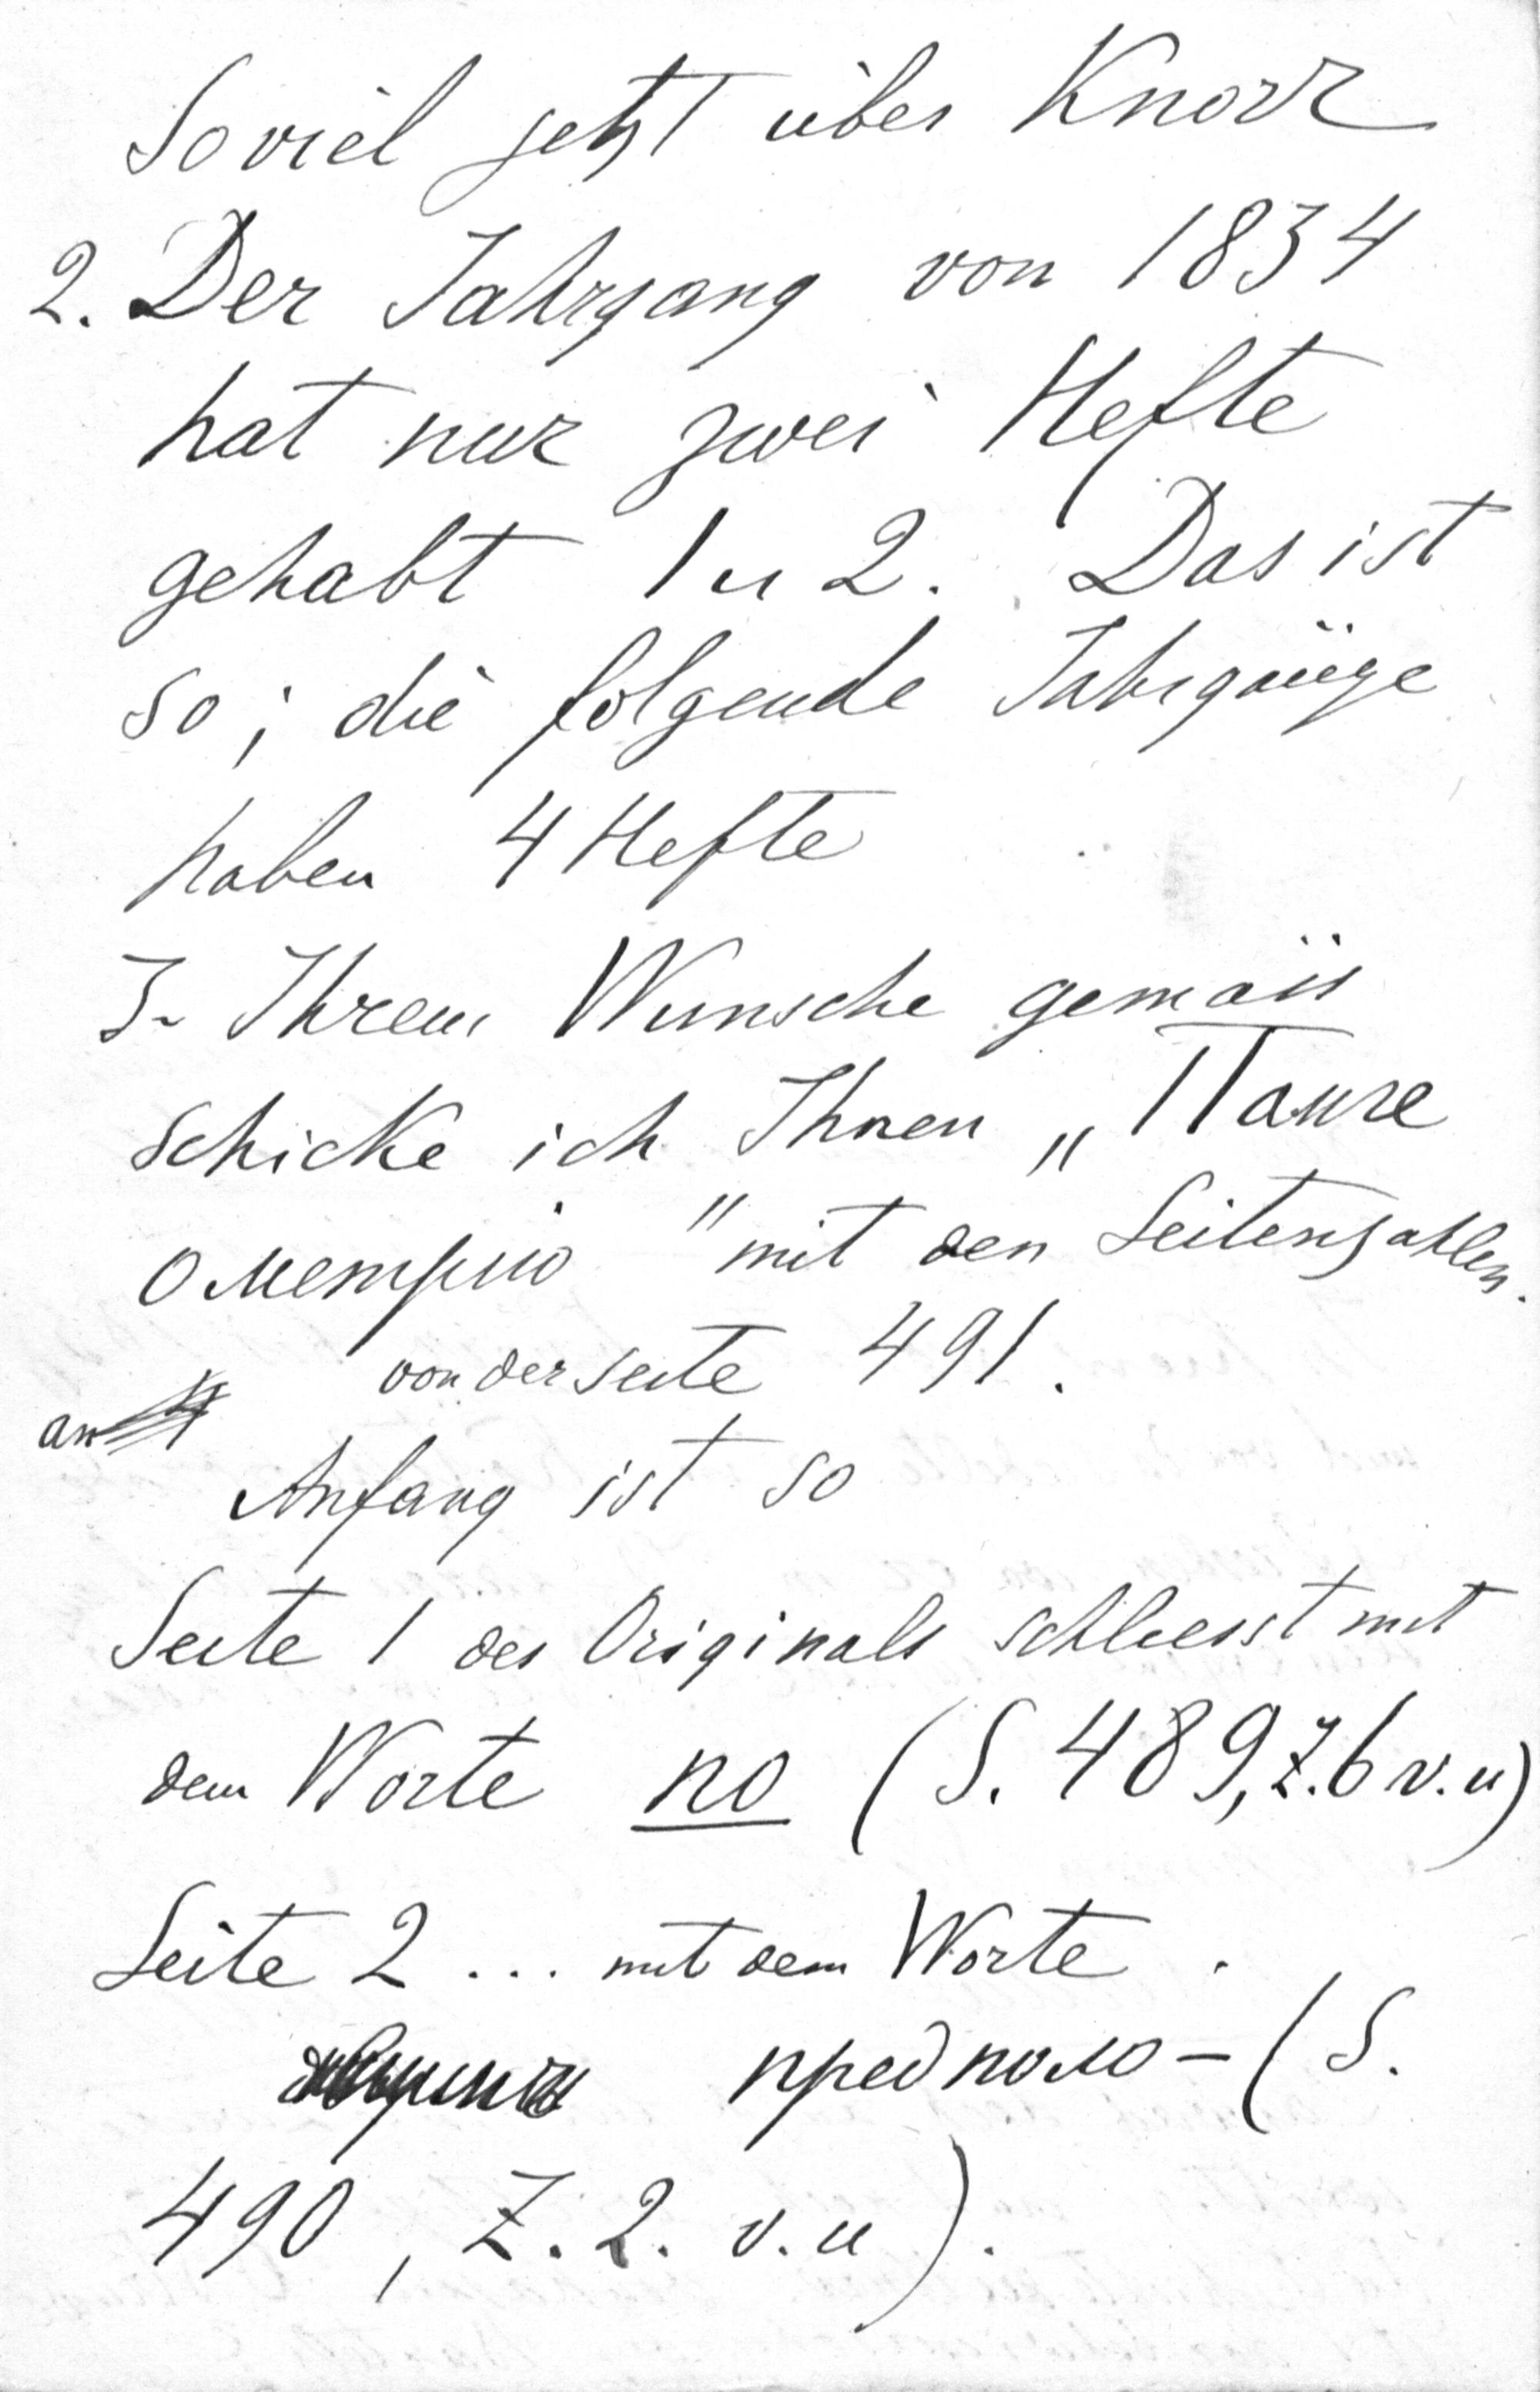 Soviel jetzt über Knorr
2. Der Jahrgang von 1834
hat nur zwei Hefte
gehabt 1 u 2. Das ist
so; die folgende Jahrgänge
haben 4 Hefte
3. Ihrem Wunsche gemäss
schicke ich Ihnen „Пангео
метрию" mit den Seitenzahlen.
von der Seite 491.
an
Anfang ist so
Seite 1 des Originals schliesst mit
dem Worte по (S. 489, Z. 6 v. u)
Seite 2 ... mit dem Worte.
предполо- (S.
490, Z. 2. v. u).